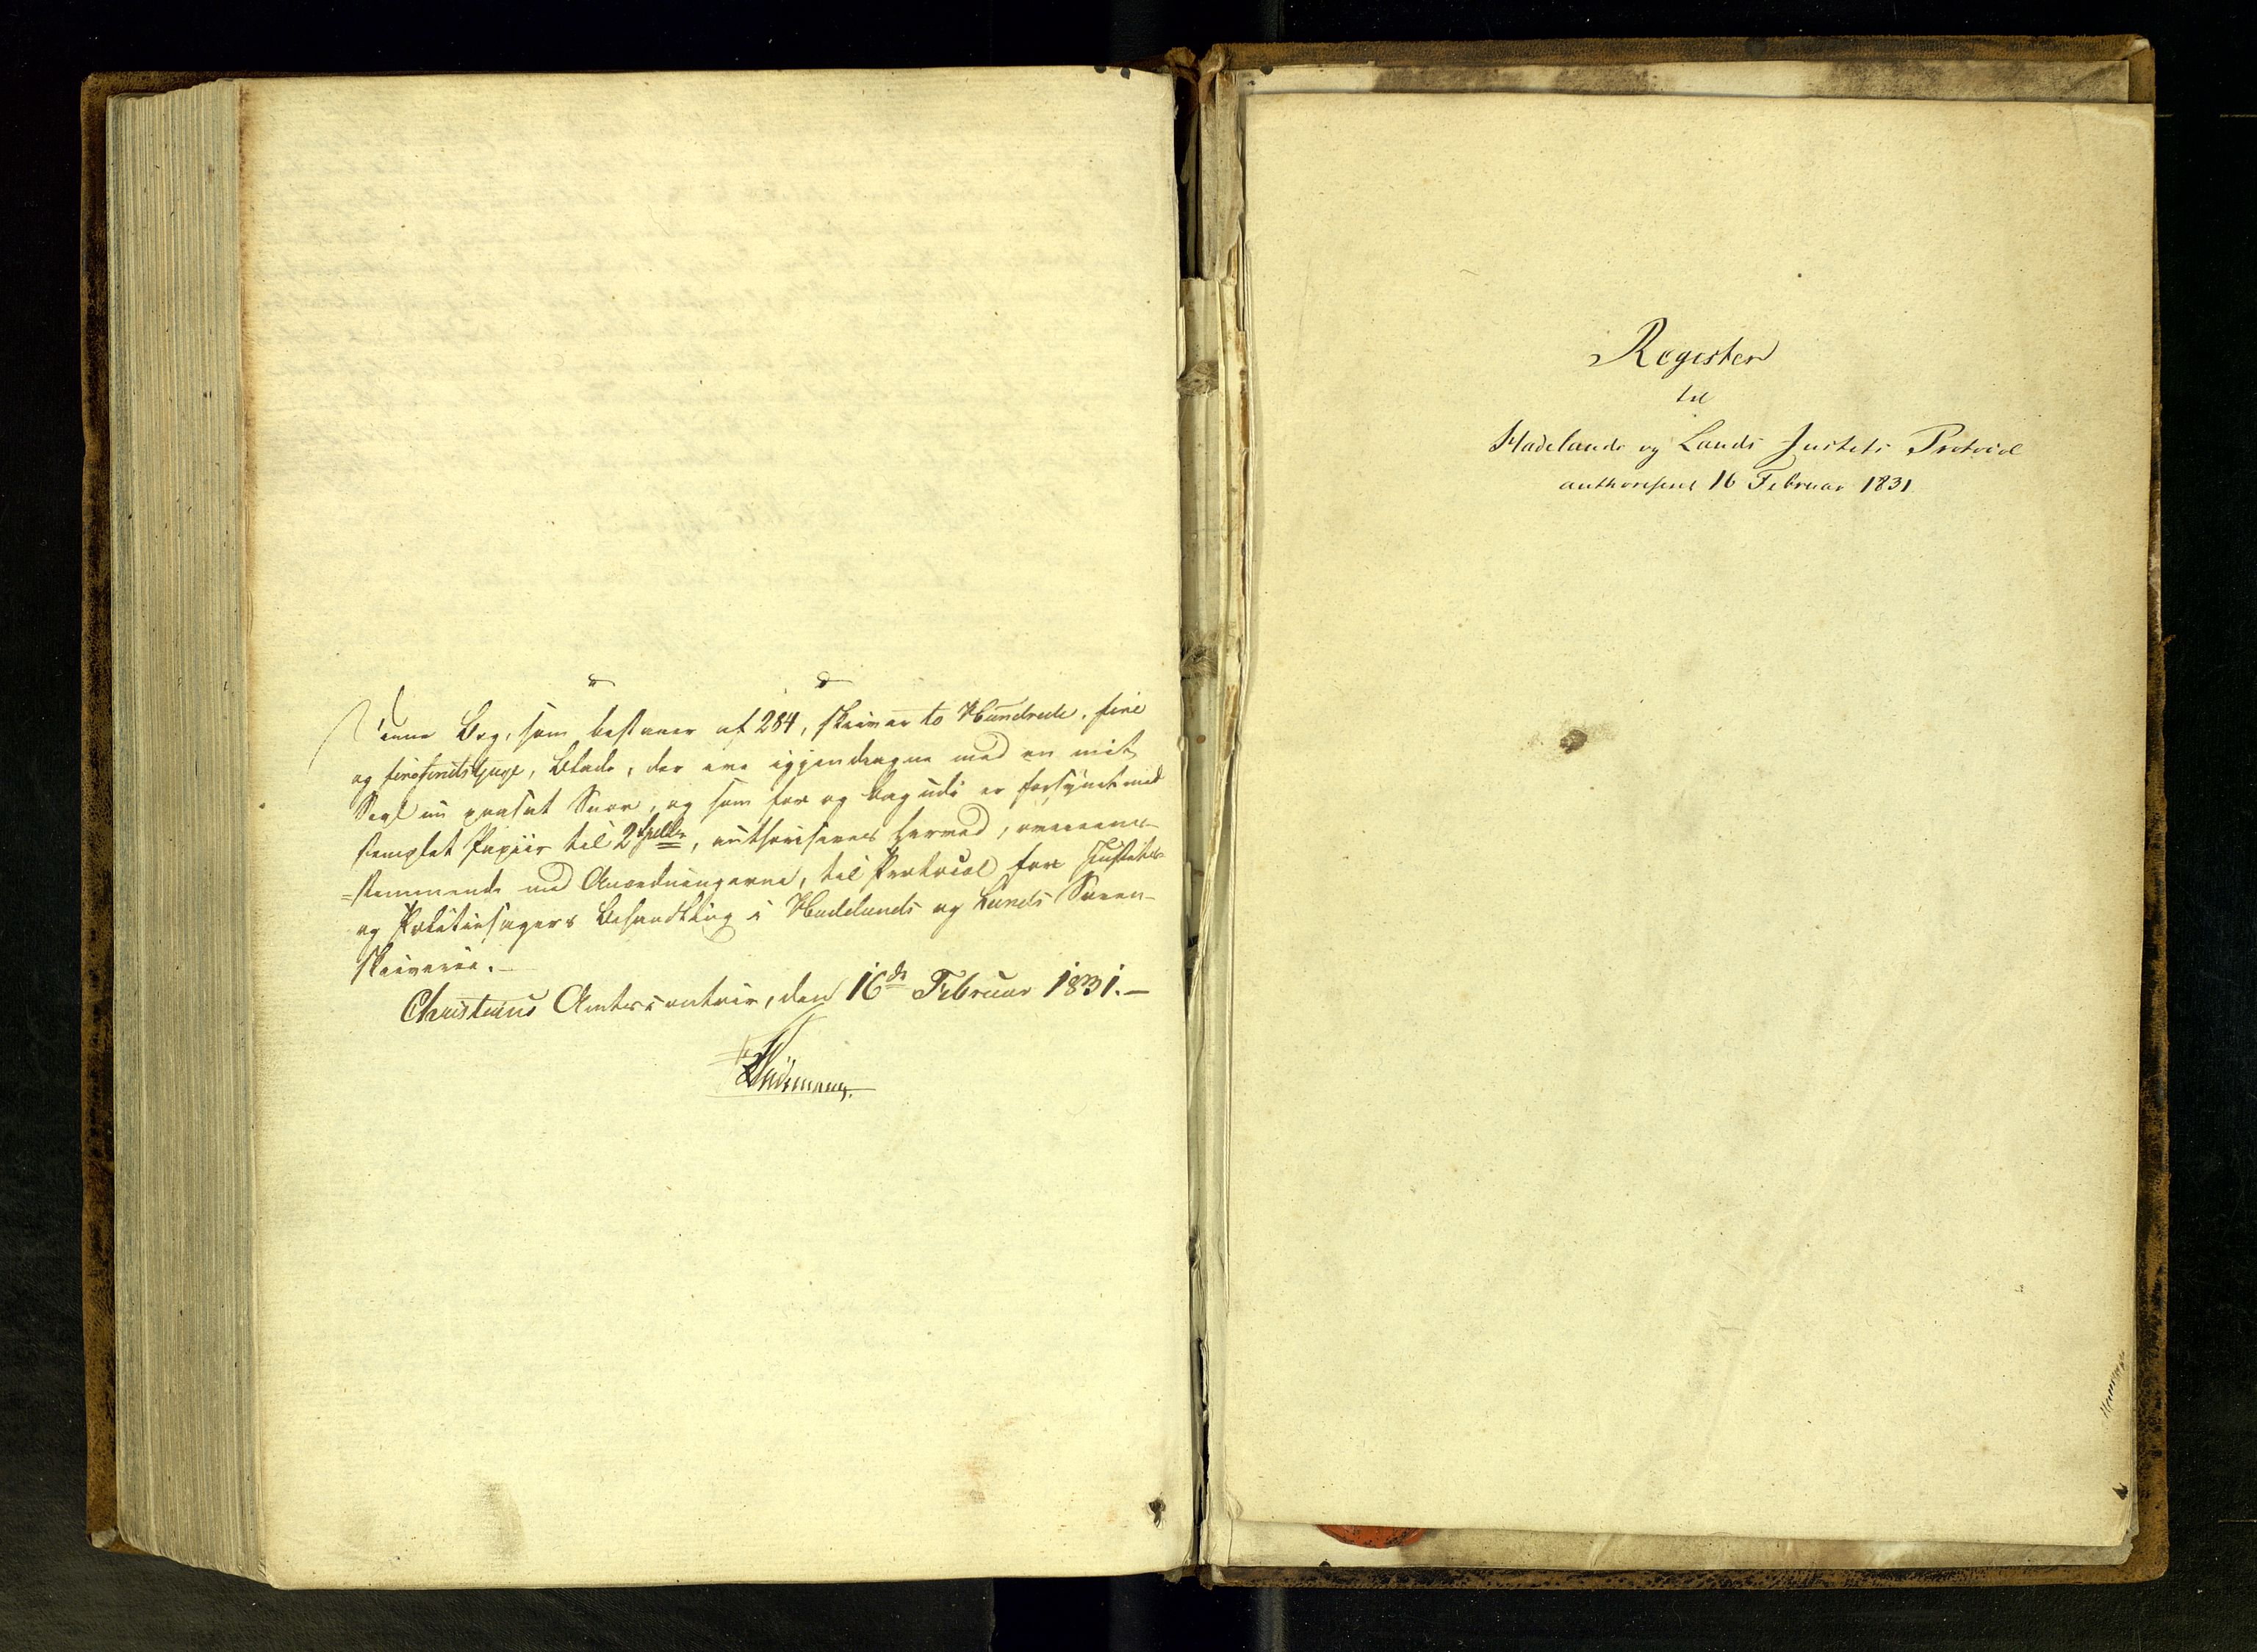 Denne Bog, som bestaaer af 284, skriver to Hundrede, fire
og firesindstyve, Blade, der ere igjendragne med en mit
Segl paasat Snor, og som for og bag udi er forsynet med
stemplet Papiir til 2 Spdlr, authoriseres herved, overeens-
=stemmende med Anordningerne, til Protocol for Justits-
og Politiesagers Behandling i Hadelands og Lands Soren-
skriverie.
Christians Amtscontoir, den 16de Februar 1831.

Register
til
Hadelands og Lands Justits Protocol
authoriseret 16 Februar 1831